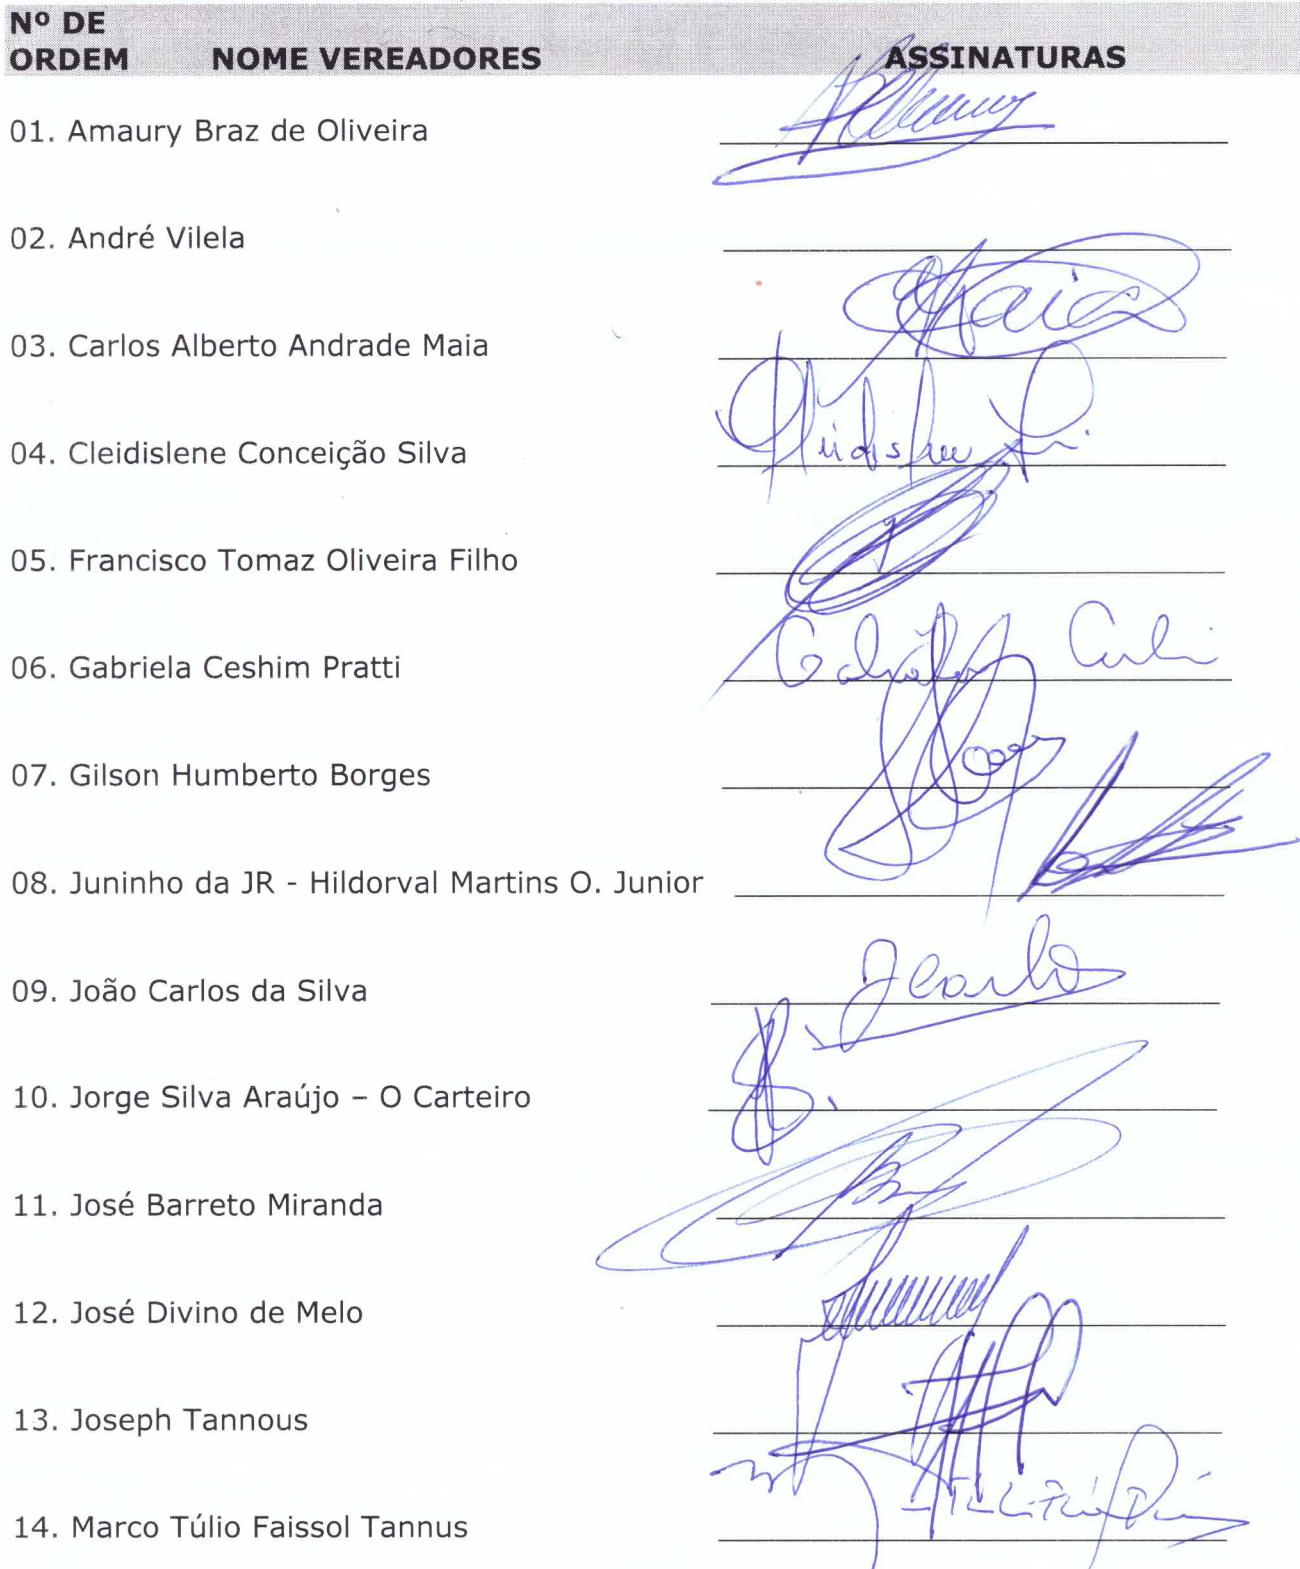 Nº DE
ORDEM NOME VEREADORES ASSINATURAS
01. Amaury Braz de Oliveira
02. André Vilela
Maia
03. Carlos Alberto Andrade Maia
04. Cleidislene Conceição Silva
05. Francisco Tomaz Oliveira Filho
06. Gabriela Ceshim Pratti
07. Gilson Humberto Borges
08. Juninho da JR - Hildorval Martins O. Junior
09. João Carlos da Silva JCarlos
10. Jorge Silva Araújo – O Carteiro
11. José Barreto Miranda
12. José Divino de Melo
13. Joseph Tannous
14. Marco Túlio Faissol Tannus